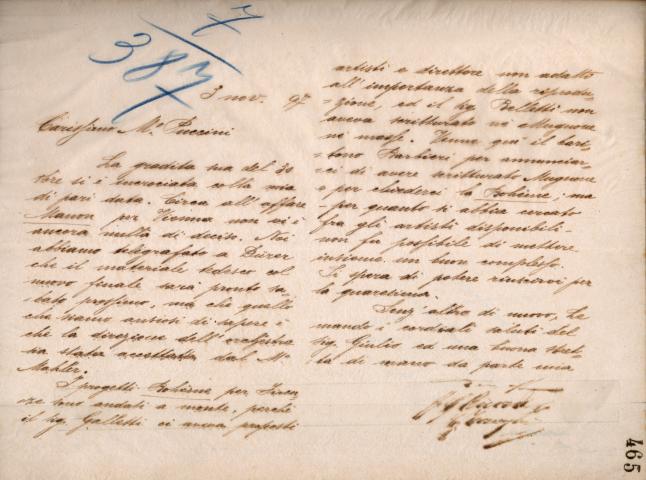 7
387
3 nov. 97
Carissimo M.o Puccini
La gradita sua del 30
8bre si è incrociata colla mia
di pari data. Circa all'affare
Manon per Vienna non vi è
ancora nulla di deciso. Noi
abbiamo telegrafato a Dürer
che il materiale tedesco col
nuovo finale sarà pronto sa-
bato prossimo, ma che quello
che siamo ansiosi di sapere è
che la direzione dell'orchestra
sia stata accettata dal M.o
Mahler.
I progetti Bohème per
sono andati a monte, perchè
il Sig. Galletti ci aveva proposti
artisti e direttore non adatto
all'importanza della riprodu-
zione, ed il Sig. Belletti non
aveva scritturato nè Mugnone
nè masse. Venne qui il bari-
tono Barbieri per annunciar-
ci di avere scritturato Mugnone
e per chiederci la Bohème; ma
per quanto si abbia cercato
fra gli artisti disponibili
non fu possibile di mettere
insieme un buon complesso.
Si spera di potere riuscirvi per
la quaresima.
Senz'altro di nuovo, Le
mando i cordiali saluti del
Sig. Giulio ed una buona stret-
ta di mano da parte mia
465